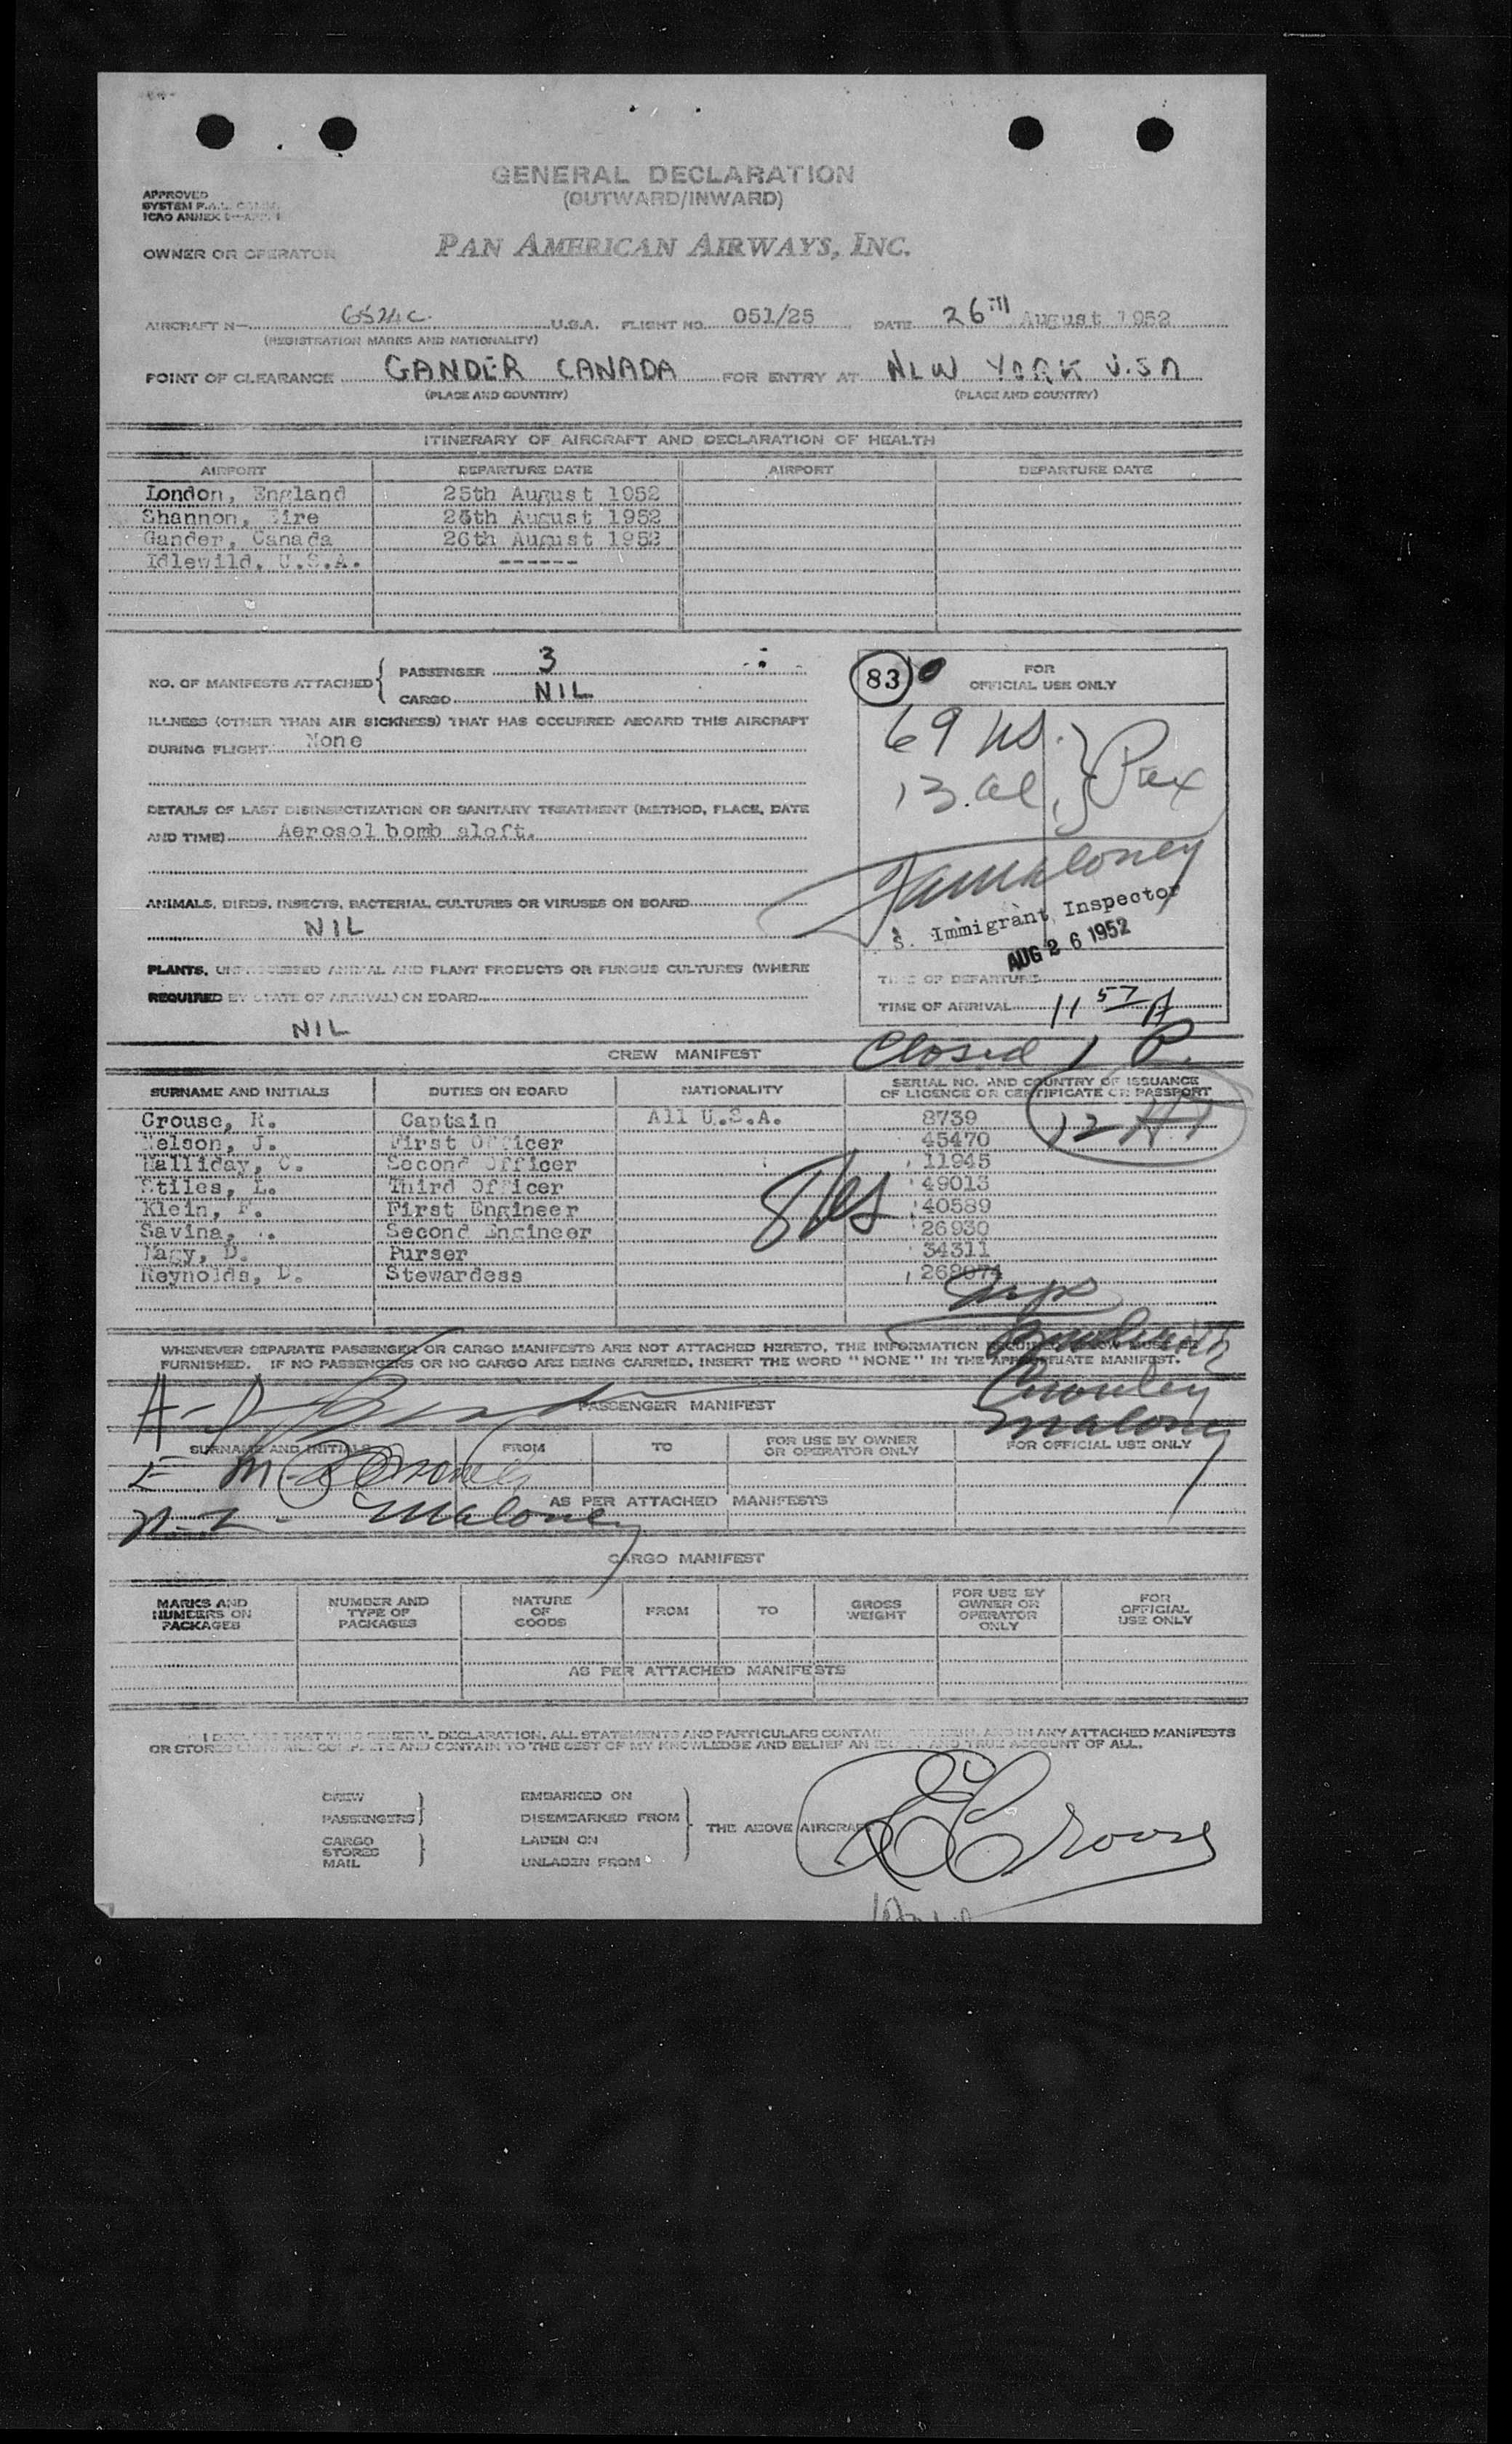 GENERAL DECLARATION
(OUTWARD/INWARD)
APPROVED
SYSTEM F.A.L.
ICAO ANNEX
OWNER OR OPERATOR PAN AMERICAN AIRWAYS, INC.
AIRCRAFT N— U.S.A. FLIGHT NO. 051/25 DATE 26TH August 1952
(REGISTRATION MARKS AND NATIONALITY)
POINT OF CLEARANCE GANDER CANADA FOR ENTRY AT NEW YORK U.S.A
(PLACE AND COUNTRY) (PLACE AND COUNTRY)
ITINERARY OF AIRCRAFT AND DECLARATION OF HEALTH
AIRPORT DEPARTURE DATE AIRPORT DEPARTURE DATE
London, England 25th August 1952
Shannon, Eire 25th August 1952
Gander, Canada 26th August 1952
Idlewild, U.S.A. ------
NO. OF MANIFESTS ATTACHED { PASSENGER 3
CARGO NIL
83 FOR
OFFICIAL USE ONLY
ILLNESS (OTHER THAN AIR SICKNESS) THAT HAS OCCURRED ABOARD THIS AIRCRAFT
DURING FLIGHT None
69 US.
13. al. } Pax
DETAILS OF LAST DISINSECTIZATION OR SANITARY TREATMENT (METHOD, PLACE, DATE
AND TIME) Aerosol bomb aloft.
Maloney
S. Immigrant Inspector
AUG 26 1952
ANIMALS, BIRDS, INSECTS, BACTERIAL CULTURES OR VIRUSES ON BOARD
NIL
PLANTS, UNPROCESSED ANIMAL AND PLANT PRODUCTS OR FUNGUS CULTURES (WHERE
REQUIRED BY STATE OF ARRIVAL) ON BOARD
NIL
TIME OF DEPARTURE
TIME OF ARRIVAL 11 57 A
Closed 1 P.
CREW MANIFEST
SURNAME AND INITIALS DUTIES ON BOARD NATIONALITY SERIAL NO. AND COUNTRY OF ISSUANCE
OF LICENCE OR CERTIFICATE OR PASSPORT
Crouse, R. Captain All U.S.A. 8739
Nelson, J. First Officer 45470
Halliday, C. Second Officer 11945
Stiles, L. Third Officer 49013
Klein, F. First Engineer 40589
Savina, Second Engineer 26930
Nagy, D. Purser 34311
Reynolds, D. Stewardess
WHENEVER SEPARATE PASSENGER OR CARGO MANIFESTS ARE NOT ATTACHED HERETO, THE INFORMATION REQUIRED BELOW MUST BE
FURNISHED. IF NO PASSENGERS OR NO CARGO ARE BEING CARRIED, INSERT THE WORD "NONE" IN THE APPROPRIATE MANIFEST.
Crowley
Maloney
PASSENGER MANIFEST
SURNAME AND INITIALS FROM TO FOR USE BY OWNER
OR OPERATOR ONLY FOR OFFICIAL USE ONLY
AS PER ATTACHED MANIFESTS
Maloney
CARGO MANIFEST
MARKS AND
NUMBERS ON
PACKAGES
NUMBER AND
TYPE OF
PACKAGES
NATURE
OF
GOODS
FROM
TO
GROSS
WEIGHT
FOR USE BY
OWNER OR
OPERATOR
ONLY
FOR
OFFICIAL
USE ONLY
AS PER ATTACHED MANIFESTS
I DECLARE THAT THIS GENERAL DECLARATION, ALL STATEMENTS AND PARTICULARS CONTAINED HEREIN, AND IN ANY ATTACHED MANIFESTS
OR STORES LISTS ARE COMPLETE AND CONTAIN TO THE BEST OF MY KNOWLEDGE AND BELIEF AN EXACT AND TRUE ACCOUNT OF ALL.
CREW
PASSENGERS
CARGO
STORES
MAIL
EMBARKED ON
DISEMBARKED FROM
LADEN ON
UNLADEN FROM
THE ABOVE AIRCRAFT